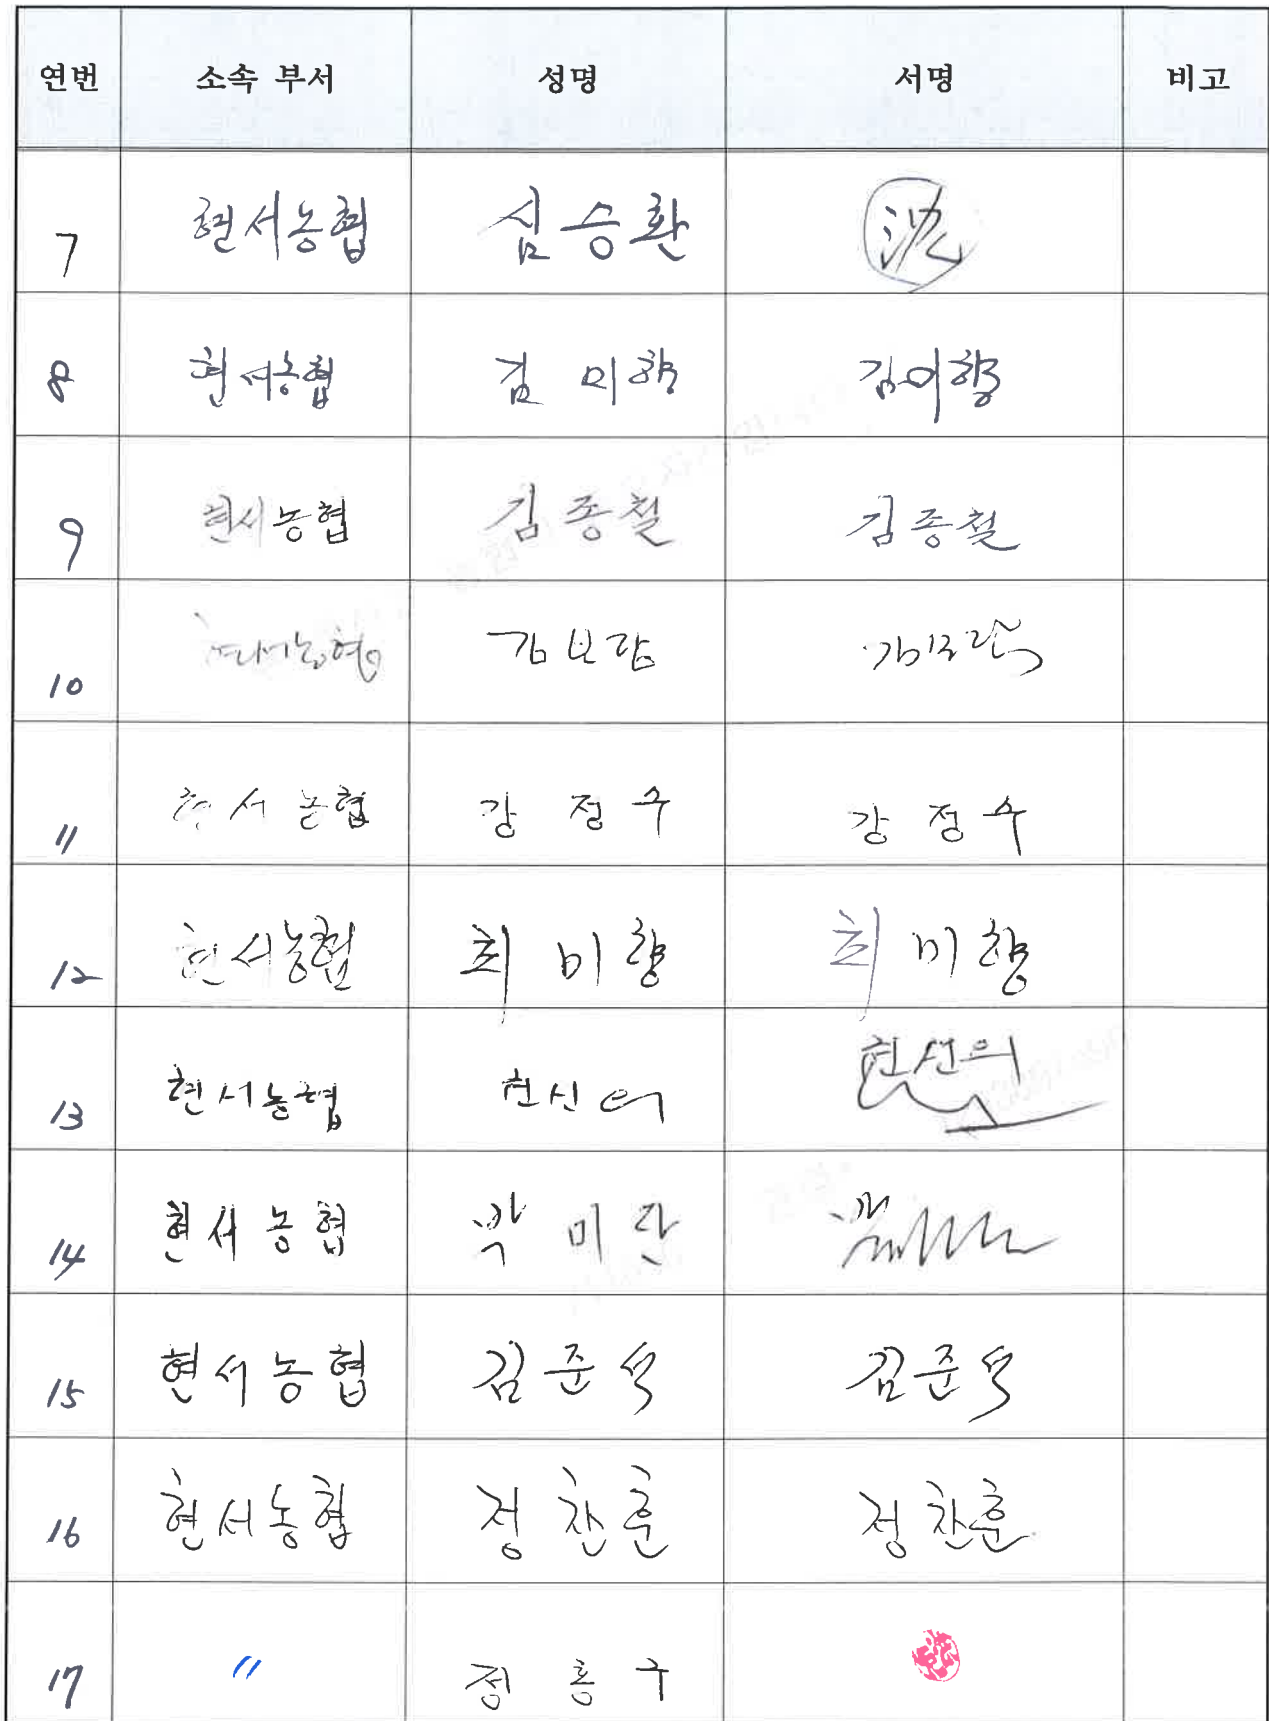 연번 소속 부서 성명 서명 비고
7 현서농협 심승환 沈
8 현서농협 김미향 김미향
9 현서농협 김종철 김종철
10 현서농협 김보람 김보람
11 현서농협 강정수 강정수
12 현서농협 최미향 최미향
13 현서농협
14 현서농협 박미란
15 현서농협 김준석 김준석
16 현서농협 정찬훈 정찬훈
17 〃 정홍구